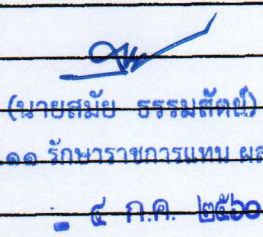 (นายสมัย ธรรมสัตย์)
๑๑ รักษาราชการแทน ผส
- ๔ ก.ค. ๒๕๖๐